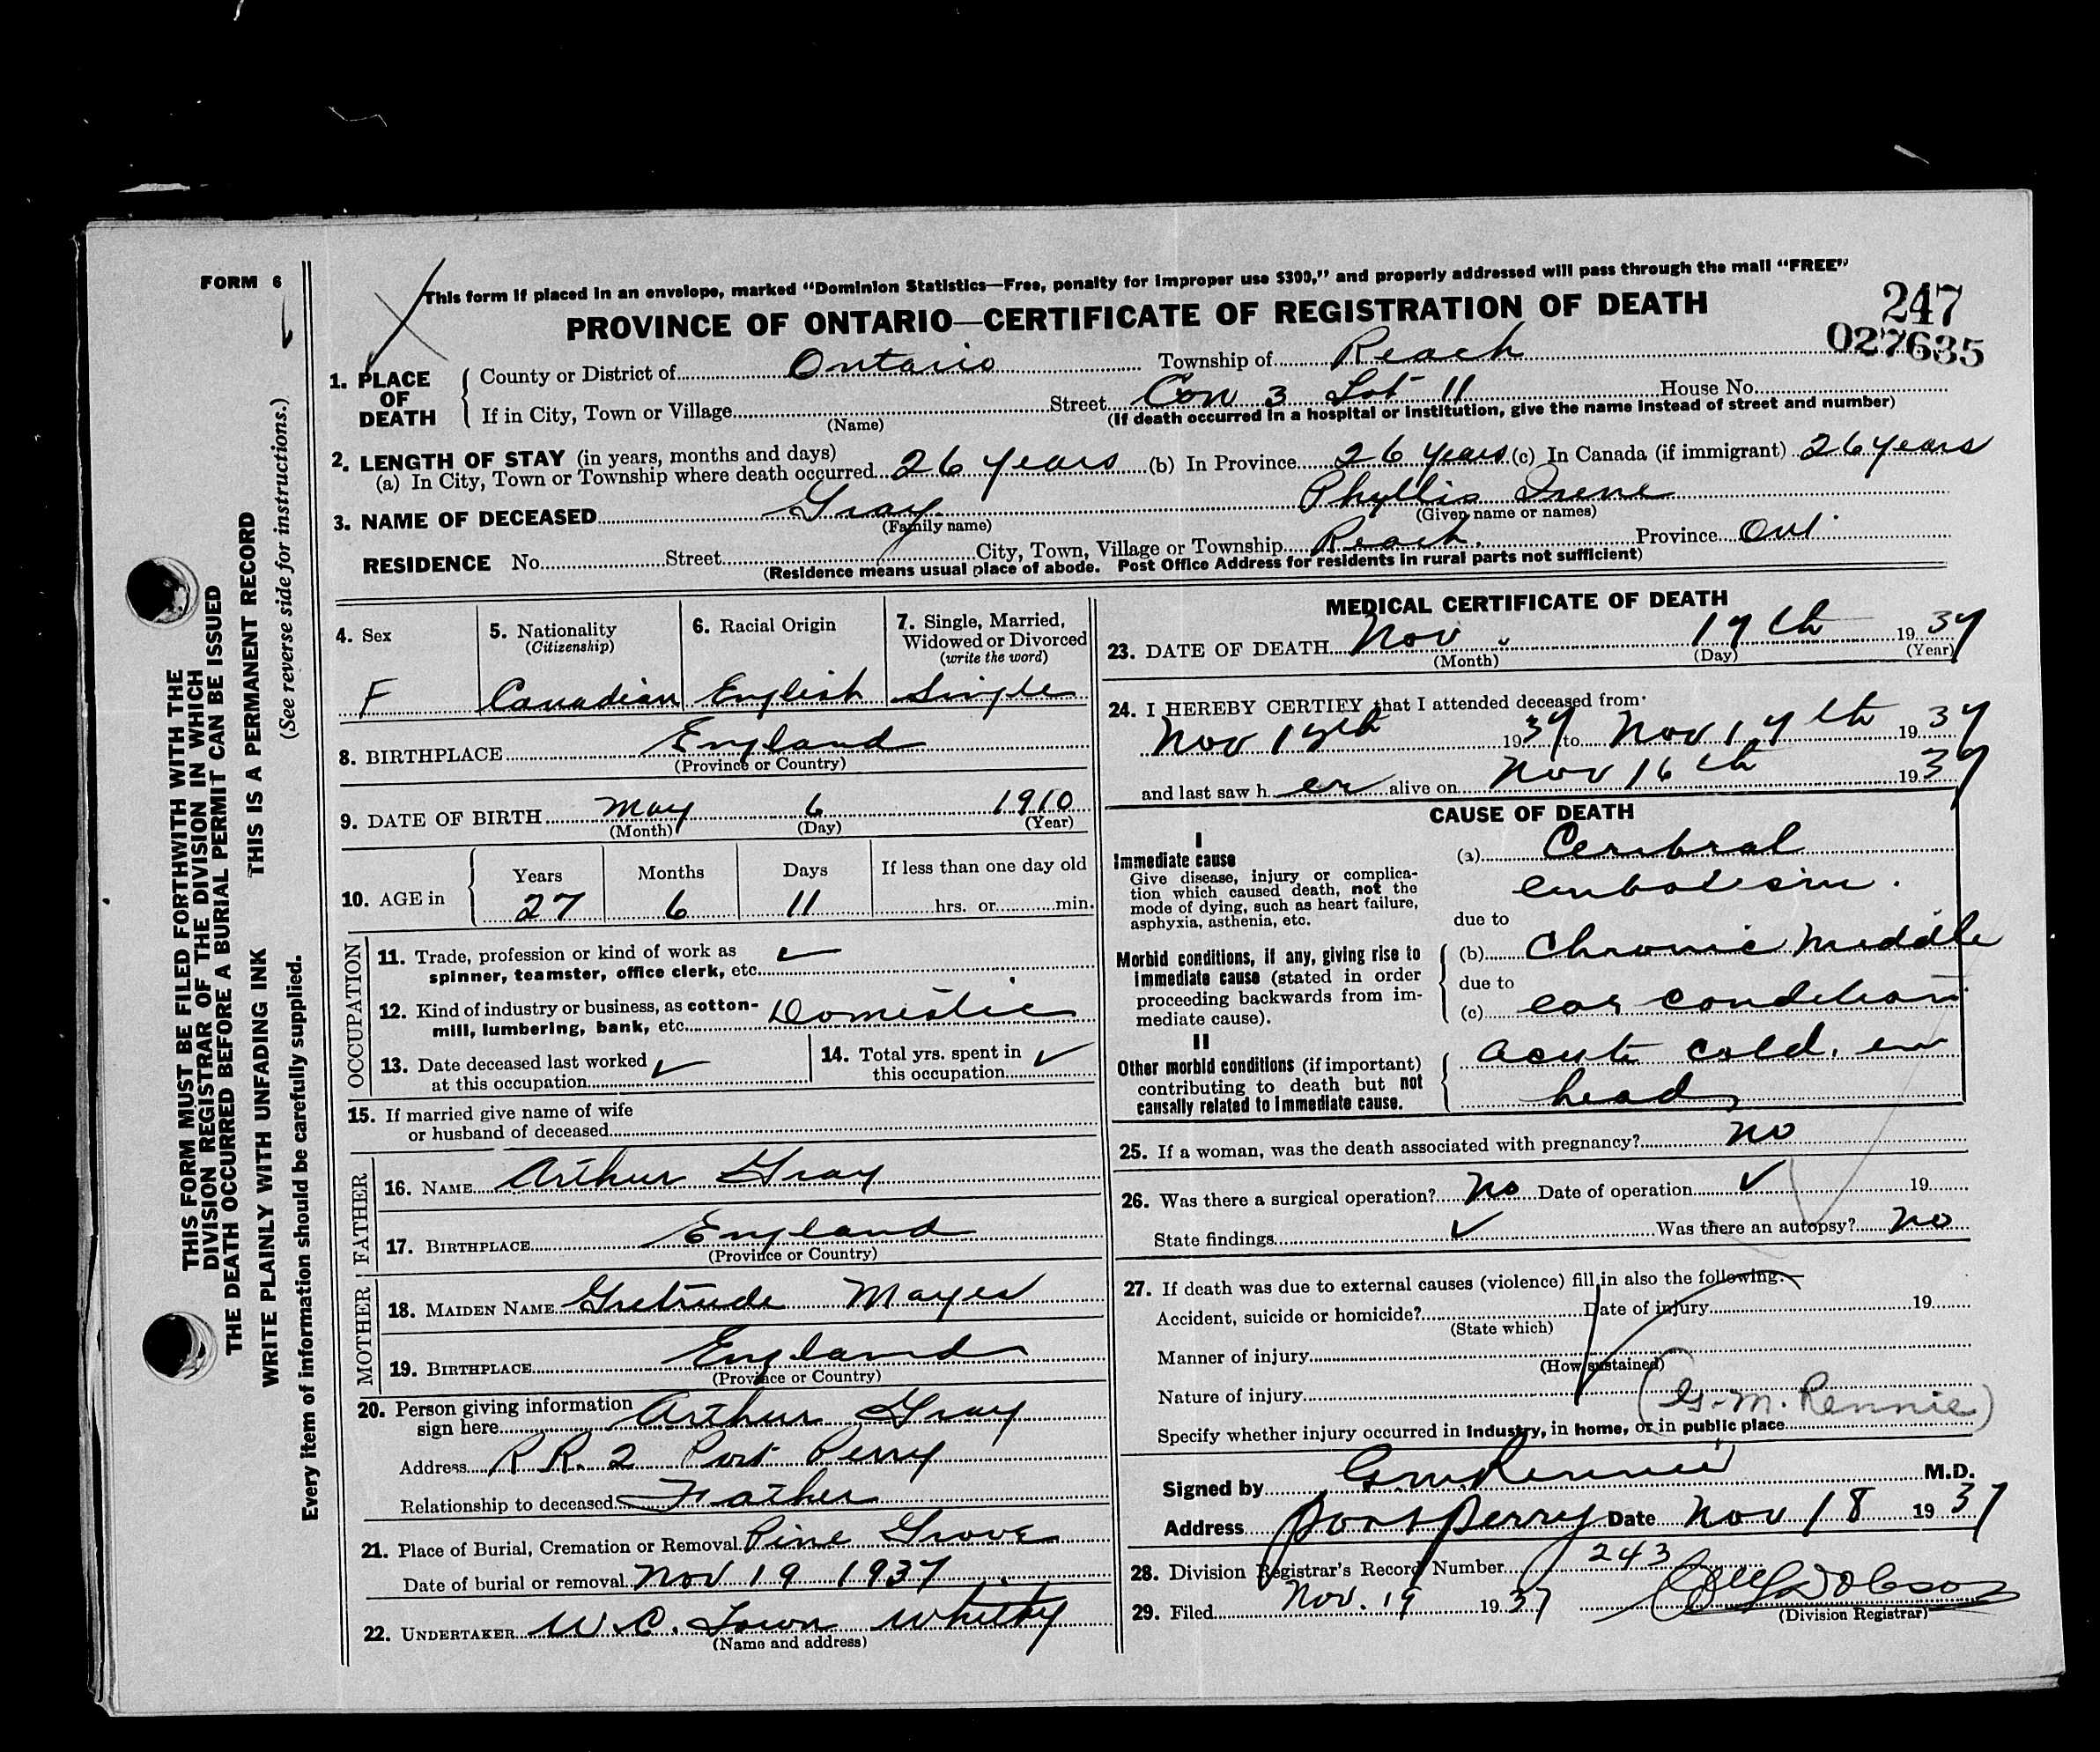 FORM 6
This form if placed in an envelope, marked "Dominion Statistics—Free, penalty for improper use $300," and properly addressed will pass through the mail "FREE"
PROVINCE OF ONTARIO—CERTIFICATE OF REGISTRATION OF DEATH
247
027635
1. PLACE OF DEATH
County or District of Ontario Township of Reach
If in City, Town or Village Street Con 3 Lot 11 House No.
(Name) (If death occurred in a hospital or institution, give the name instead of street and number)
2. LENGTH OF STAY (in years, months and days)
(a) In City, Town or Township where death occurred 26 years (b) In Province 26 years (c) In Canada (if immigrant) 26 years
3. NAME OF DECEASED Gray Phyllis Irene
(Family name) (Given name or names)
RESIDENCE No. Street City, Town, Village or Township Reach. Province Ont.
(Residence means usual place of abode. Post Office Address for residents in rural parts not sufficient)
4. Sex
F
5. Nationality
(Citizenship)
Canadian
6. Racial Origin
English
7. Single, Married,
Widowed or Divorced
(write the word)
Single
8. BIRTHPLACE England
(Province or Country)
9. DATE OF BIRTH May 6 1910
(Month) (Day) (Year)
10. AGE in
Years Months Days If less than one day old
27 6 11 hrs. or min.
OCCUPATION
11. Trade, profession or kind of work as
spinner, teamster, office clerk, etc.
12. Kind of industry or business, as cotton-
mill, lumbering, bank, etc. Domestic
13. Date deceased last worked
at this occupation
14. Total yrs. spent in
this occupation
15. If married give name of wife
or husband of deceased
FATHER
16. NAME Arthur Gray
17. BIRTHPLACE England
(Province or Country)
MOTHER
18. MAIDEN NAME Gretrude Mayes
19. BIRTHPLACE England
(Province or Country)
20. Person giving information
sign here Arthur Gray
Address R R. 2 Port Perry
Relationship to deceased Father
21. Place of Burial, Cremation or Removal Pine Grove
Date of burial or removal Nov 19 1937
22. UNDERTAKER W. C. Town Whitby
(Name and address)
MEDICAL CERTIFICATE OF DEATH
23. DATE OF DEATH Nov 17th 1937
(Month) (Day) (Year)
24. I HEREBY CERTIFY that I attended deceased from
Nov 1937 to Nov 17th 1937
and last saw her alive on Nov 16th 1937
CAUSE OF DEATH
I
Immediate cause
Give disease, injury or complica-
tion which caused death, not the
mode of dying, such as heart failure,
asphyxia, asthenia, etc.
(a) Cerebral
embolism.
due to
Morbid conditions, if any, giving rise to
immediate cause (stated in order
proceeding backwards from im-
mediate cause).
(b) Chronic middle
due to
(c) ear condition
II
Other morbid conditions (if important)
contributing to death but not
causally related to immediate cause.
Acute cold, in
head
25. If a woman, was the death associated with pregnancy? no
26. Was there a surgical operation? no Date of operation 19
State findings Was there an autopsy? no
27. If death was due to external causes (violence) fill in also the following:—
Accident, suicide or homicide? Date of injury 19
(State which)
Manner of injury
(How sustained)
Nature of injury
(G. M. Rennie)
Specify whether injury occurred in industry, in home, or in public place
Signed by G M Rennie M.D.
Address Port Perry Date Nov 18 1937
28. Division Registrar's Record Number 243
29. Filed Nov. 19 1937 Dobson
(Division Registrar)
THIS FORM MUST BE FILED FORTHWITH WITH THE
DIVISION REGISTRAR OF THE DIVISION IN WHICH
THE DEATH OCCURRED BEFORE A BURIAL PERMIT CAN BE ISSUED
WRITE PLAINLY WITH UNFADING INK THIS IS A PERMANENT RECORD
Every item of information should be carefully supplied. (See reverse side for instructions.)